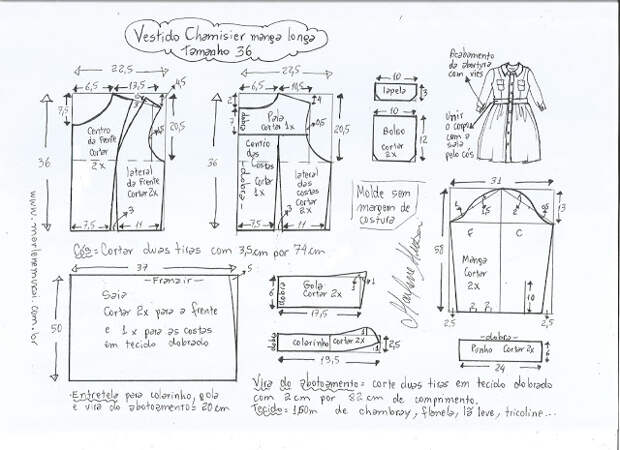 Vestido Chamisier manga longa
Tamanho 36
22,5
6,5
13,5
4,5
7,5
36
20,5
Centro
da frente
cortar
2x
lateral da
frente
Cortar 2x
7,5
3
11
22,5
6,5
10,5
2
4
7
dobra
Pala
cortar 1x
0,5
20,5
36
Centro
das
Costas
Cortar
1x
dobra
lateral
das
costas
Cortar
2x
7,5
3
11
10
lapela
3
10
Bolso
cortar
2x
12
Acabamento
da abertura
com viés
Unir
o corpo
com a
saia
pelo cós
Molde sem
margem de
costura
31
13
58
F
C
Manga
Cortar
2x
10
2,5
2,5
Cós = Cortar duas tiras com 3,5cm por 74cm
37
Franzir
5
50
Saia
Cortar 2x para a frente
e 1x para as costas
em tecido dobrado
6
dobra
Gola
Cortar 2x
1
17,5
dobra
colarinho
cortar 2x
2,5
19,5
dobra
Punho Cortar 2x
6
24
Entretela para colarinho, gola
e vira do abotoamento = 20cm
Vira do abotoamento = corte duas tiras em tecido dobrado
com 2cm por 82cm de comprimento.
Tecido = 1,50m de chambray, flanela, lã leve, tricoline...
www.marlenemukai.com.br